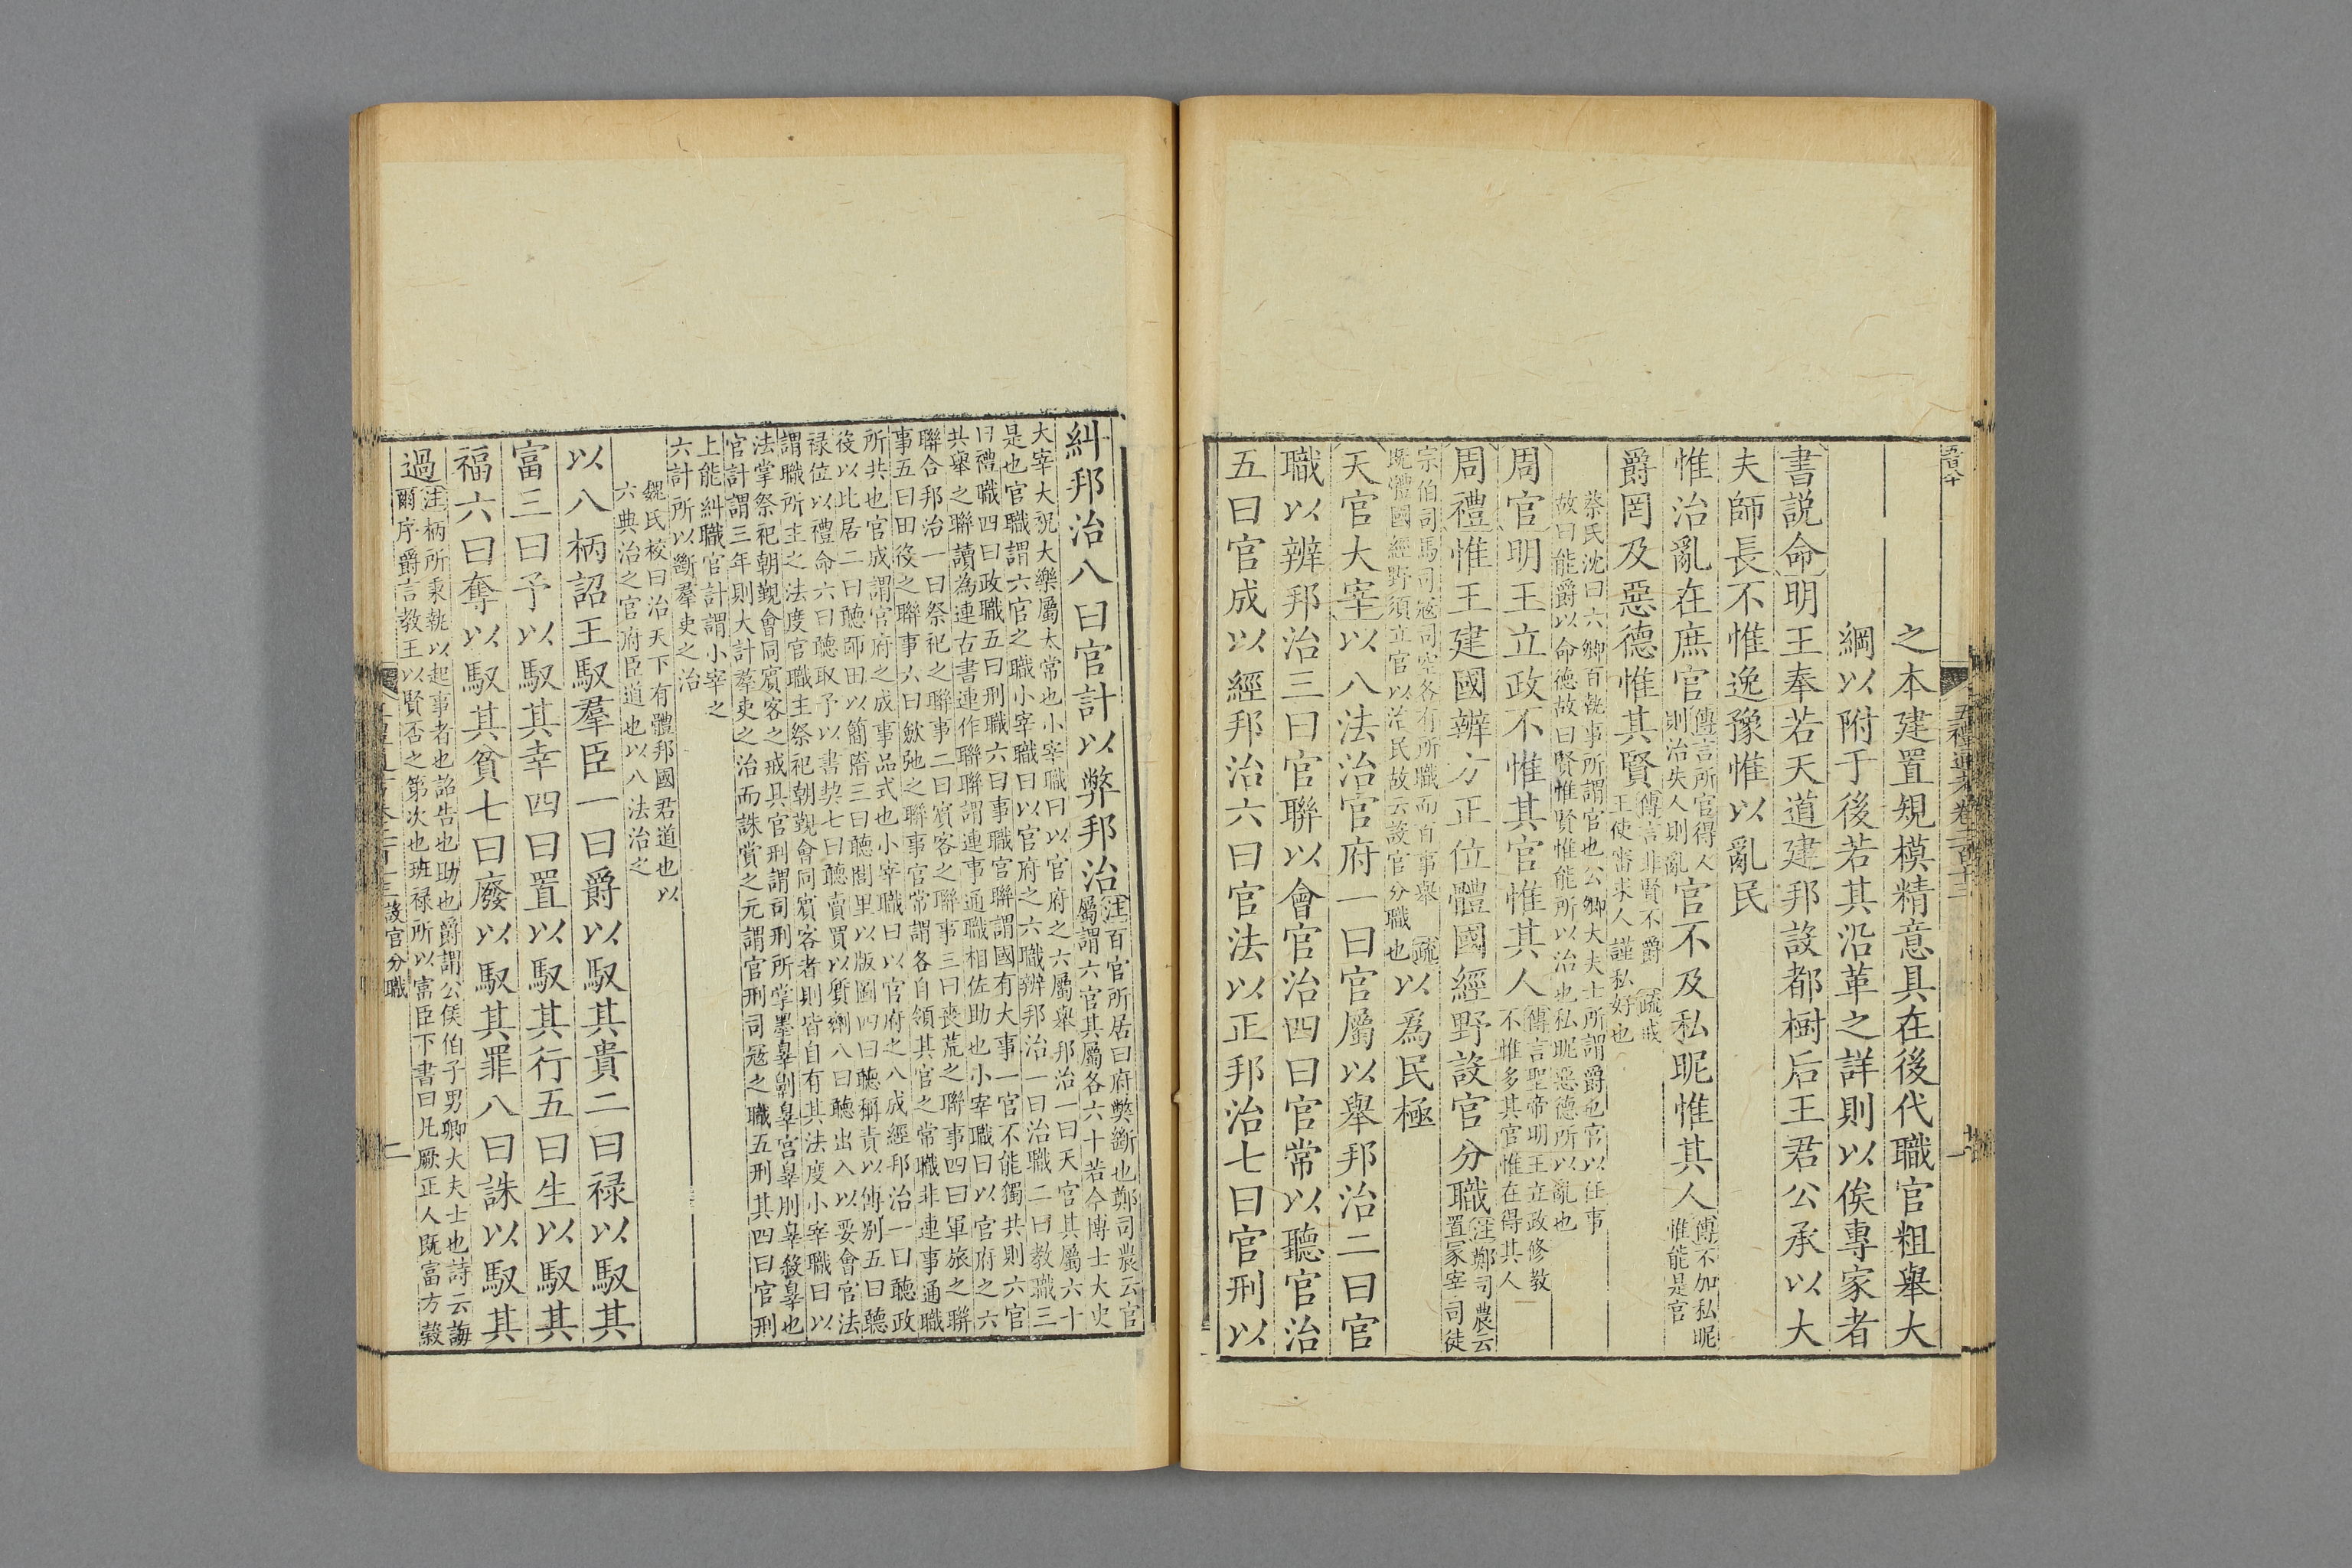 之本建置規模精意具在後代職官粗舉大
綱以附于後若其沿革之詳則以俟專家者
書説命明王奉若天道建邦設都樹后王君公承以大
夫師長不惟逸豫惟以亂民
惟治亂在庶官傳言所官得人則治失人則亂官不及私昵惟其人傳不加私昵惟能是官
爵罔及惡德惟其賢傳言非賢不爵疏戒王使審求人謹私好也
蔡氏沈曰六卿百執事所謂官也公卿大夫士所謂爵也官以任事
故曰能爵以命德故曰賢惟賢惟能所以治也私昵惡德所以亂也
周官明王立政不惟其官惟其人傳言聖帝明王立政修教不惟多其官惟在得其人
周禮惟王建國辨方正位體國經野設官分職注鄭司農云置冢宰司徒
宗伯司馬司寇司空各有所職而百事舉疏既體國經野須立官以治民故云設官分職也以爲民極
天官大宰以八法治官府一曰官屬以舉邦治二曰官
職以辨邦治三曰官聯以會官治四曰官常以聽官治
五曰官成以經邦治六曰官法以正邦治七曰官刑以
糾邦治八曰官計以弊邦治注百官所居曰府弊斷也鄭司農云官屬謂六官其屬各六十若今博士大史
大宰大祝大樂屬太常也小宰職曰以官府之六屬舉邦治一曰天官其屬六十
是也官職謂六官之職小宰職曰以官府之六職辨邦治一曰治職二曰教職三
曰禮職四曰政職五曰刑職六曰事職官聯謂國有大事一官不能獨共則六官
共舉之聯讀為連古書連作聯聯謂連事通職相佐助也小宰職曰以官府之六
聯合邦治一曰祭祀之聯事二曰賓客之聯事三曰喪荒之聯事四曰軍旅之聯
事五曰田役之聯事六曰斂弛之聯事官常謂各自領其官之常職非連事通職
所共也官成謂官府之成事品式也小宰職曰以官府之八成經邦治一曰聽政
役以比居二曰聽師田以簡稽三曰聽閭里以版圖四曰聽稱責以傅别五曰聽
禄位以禮命六曰聽取予以書契七曰聽賣買以質劑八曰聽出入以要會官法
謂職所主之法度官職主祭祀朝覲會同賓客者則皆自有其法度小宰職曰以
法掌祭祀朝覲會同賓客之戒具官刑謂司刑所掌墨辠劓辠宫辠刖辠殺辠也
官計謂三年則大計羣吏之治而誅賞之元謂官刑司寇之職五刑其四曰官刑
上能糾職官計謂小宰之
六計所以斷羣吏之治
魏氏校曰治天下有體邦國君道也以
六典治之官府臣道也以八法治之
以八柄詔王馭羣臣一曰爵以馭其貴二曰禄以馭其
富三曰予以馭其幸四曰置以馭其行五曰生以馭其
福六曰奪以馭其貧七曰廢以馭其罪八曰誅以馭其
過注柄所秉執以起事者也詔告也助也爵謂公侯伯子男卿大夫士也詩云誨爾序爵言教王以賢否之第次也班禄所以富臣下書曰凡厥正人既富方穀
設官分職
二